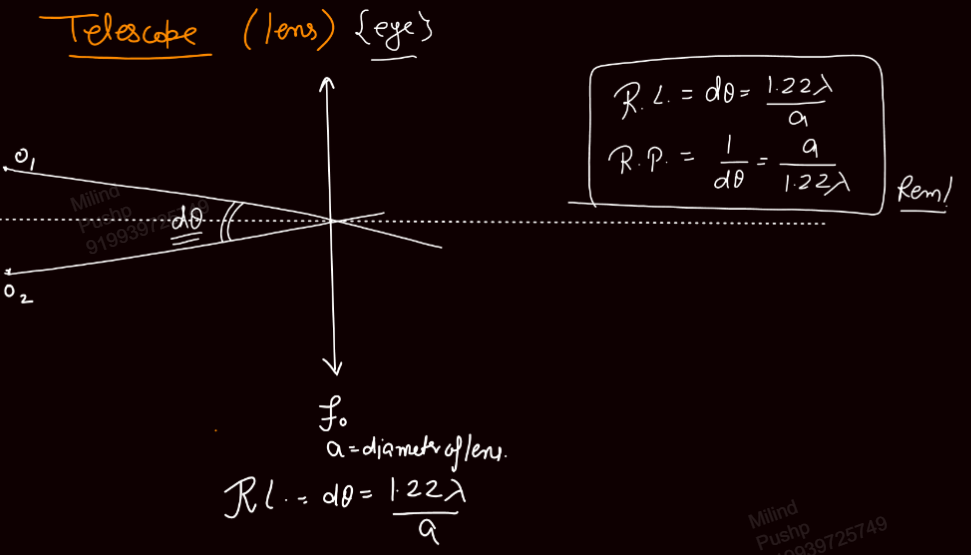 Telescope (lens) {eye}
R.L. = dθ = 1.22λ/a
R.P. = 1/dθ = a/1.22λ
Rem!
O₁
dθ
O₂
Milind
Pushp
919939725749
fₒ
a = diameter of lens.
RL. = dθ = 1.22λ/a
Milind
Pushp
919939725749